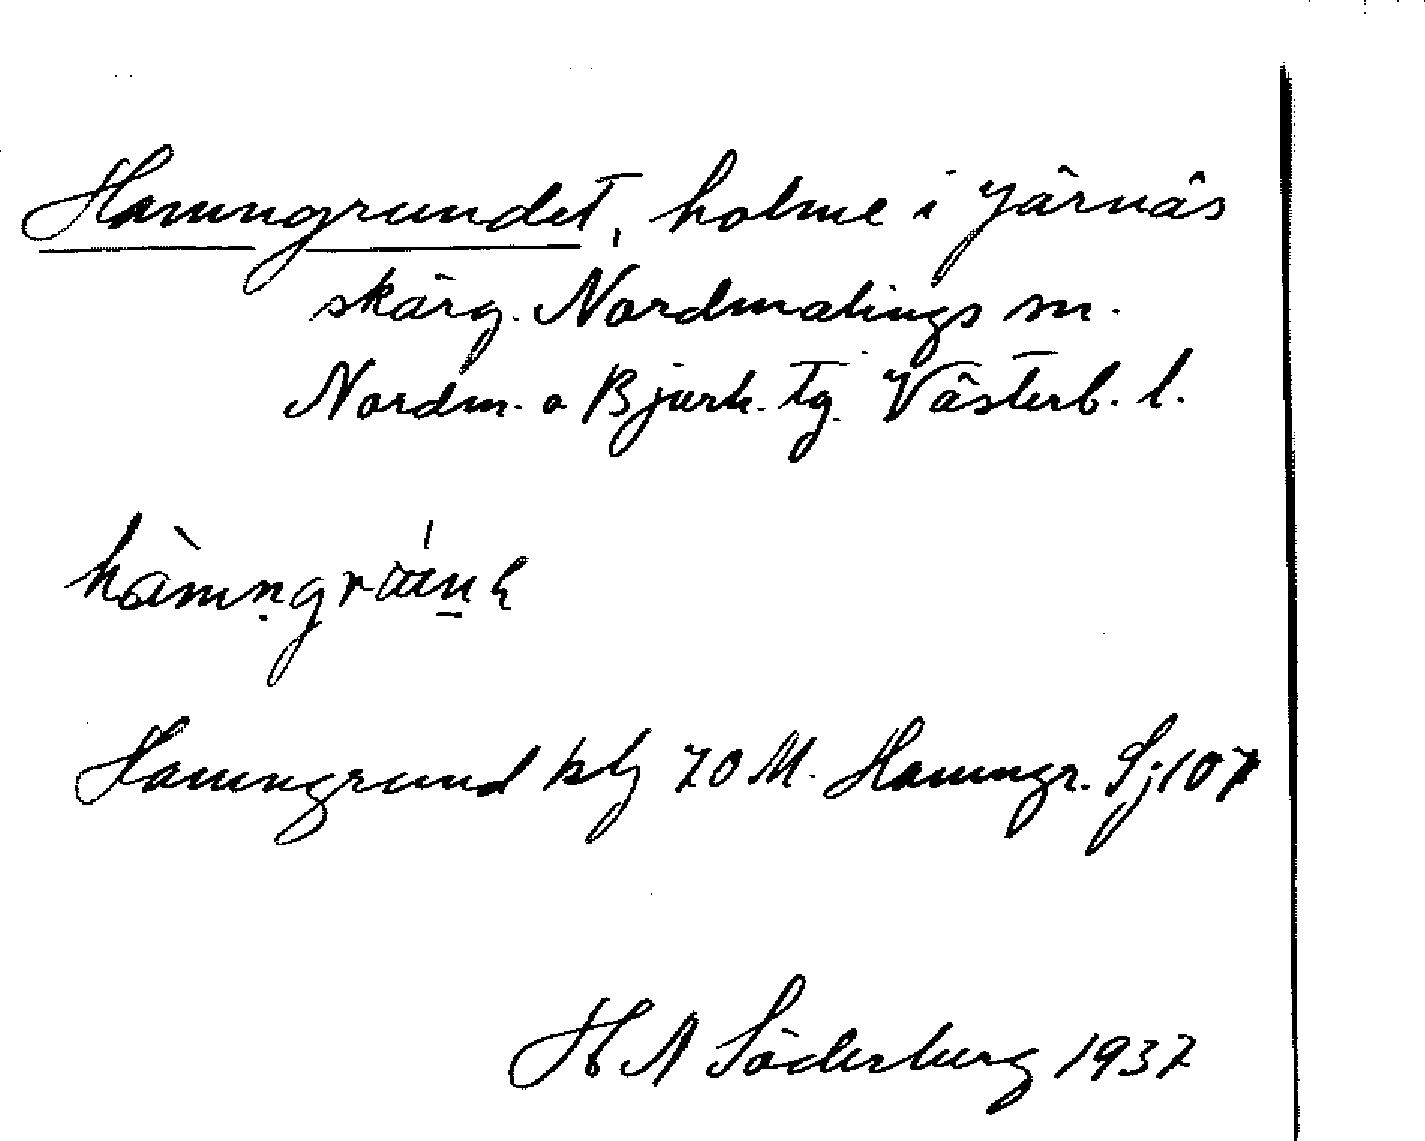 Hamngrundet, holme i Järnäs
skärg. Nordmalings sn.
Nordm. o Bjurh. tg. Västerb. l.
Hamngrund blz 70 M. Hamngr. Sj 107
H A Söderberg 1937